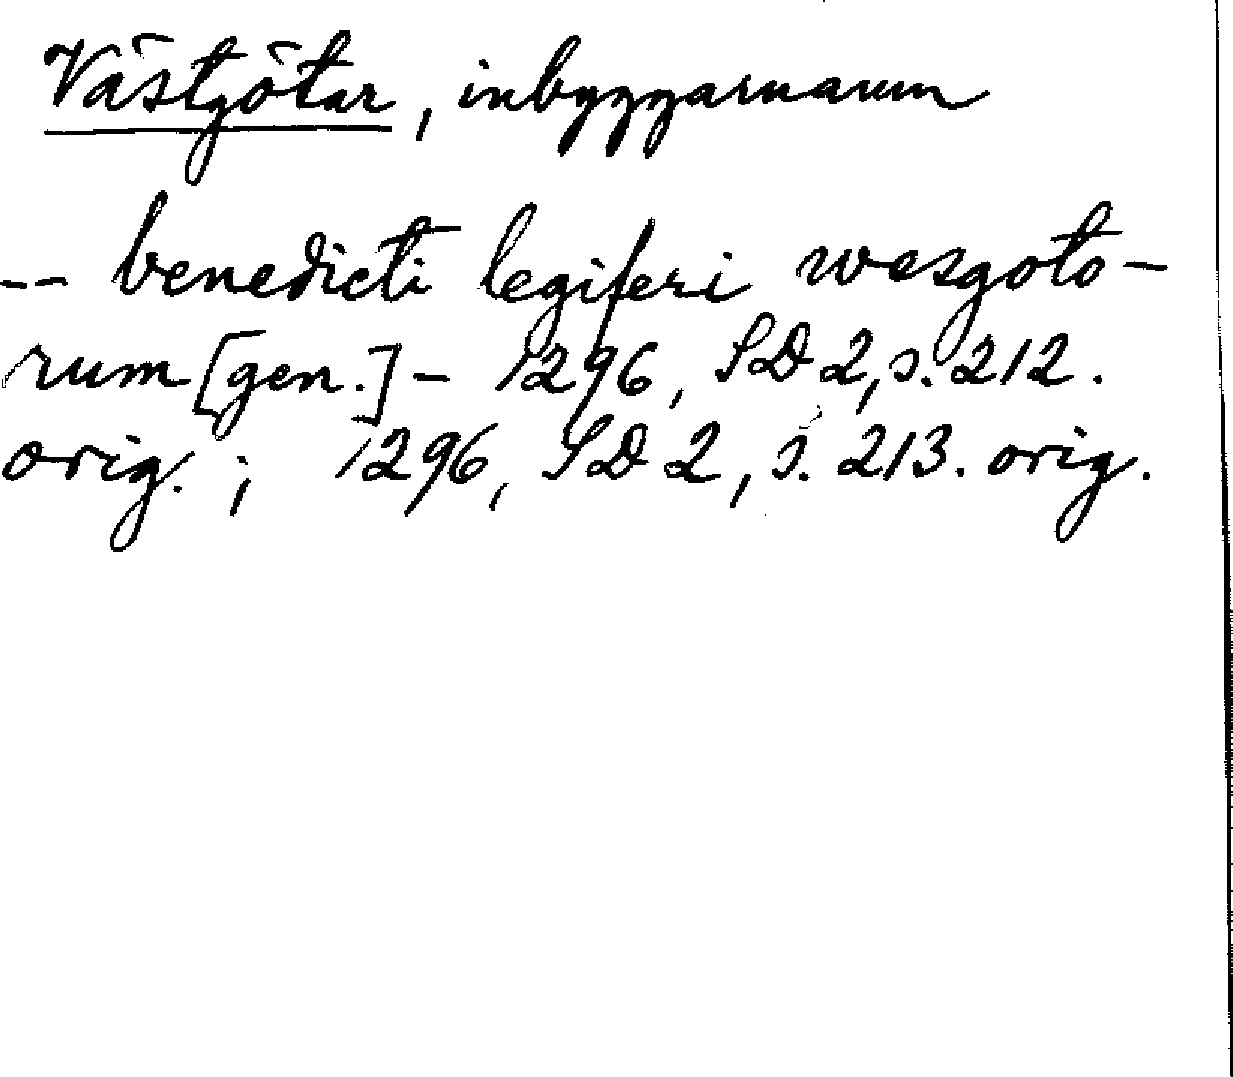 Västgötar, inbyggarnamn
-- benedicti legiferi wesgoto-
rum [gen.] - 1296, SD 2, s. 212.
orig.; 1296, SD 2, s. 213. orig.